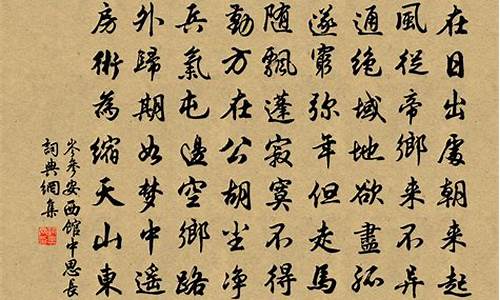 在日出處朝来起
風從帝鄉来不異
通絶域地欲盡孤
遂窮弥年但走馬
随飄蓬寂寞不得
勤方在公胡尘净
兵氣屯邊空鄉路
外歸期如梦中遥
房術為縮天山東
岑參安西館中思長
詞典網集